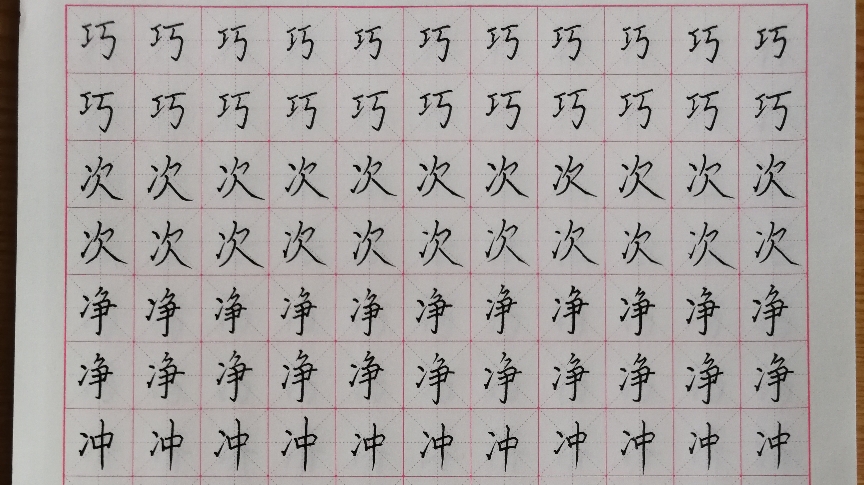 巧巧巧巧巧巧巧巧巧巧巧
巧巧巧巧巧巧巧巧巧巧巧
次次次次次次次次次次次
次次次次次次次次次次次
净净净净净净净净净净净
净净净净净净净净净净净
冲冲冲冲冲冲冲冲冲冲冲